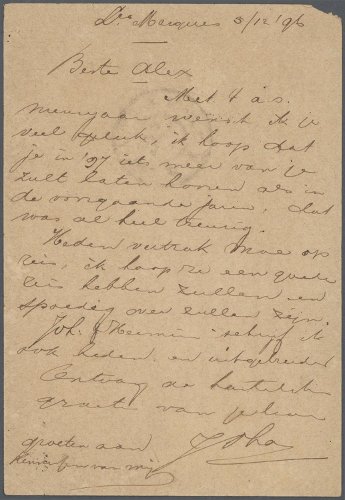 Drs Marques 3/12 '96
Beste Alex
Met 't a.s.
nieuwjaar wensch ik je
veel geluk, ik hoop dat
je in '97 iets meer van je
zult laten hooren als in
de voorgaande jaren, dat
was al heel treurig.
Heden vertrok moe op
reis, ik hoop ze een goede
reis hebben zullen en
spoedig over zullen zijn.
Joh. & Hermine schrijf ik
ook heden en uitgebreider
Ontvang de hartelijke
groet van je
Joha
groeten aan
van mij